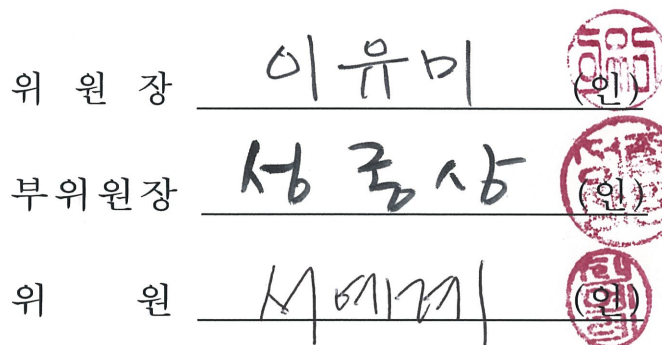 위 원 장 이유미 (인)
부위원장 성종상 (인)
위 원 서예례 (인)